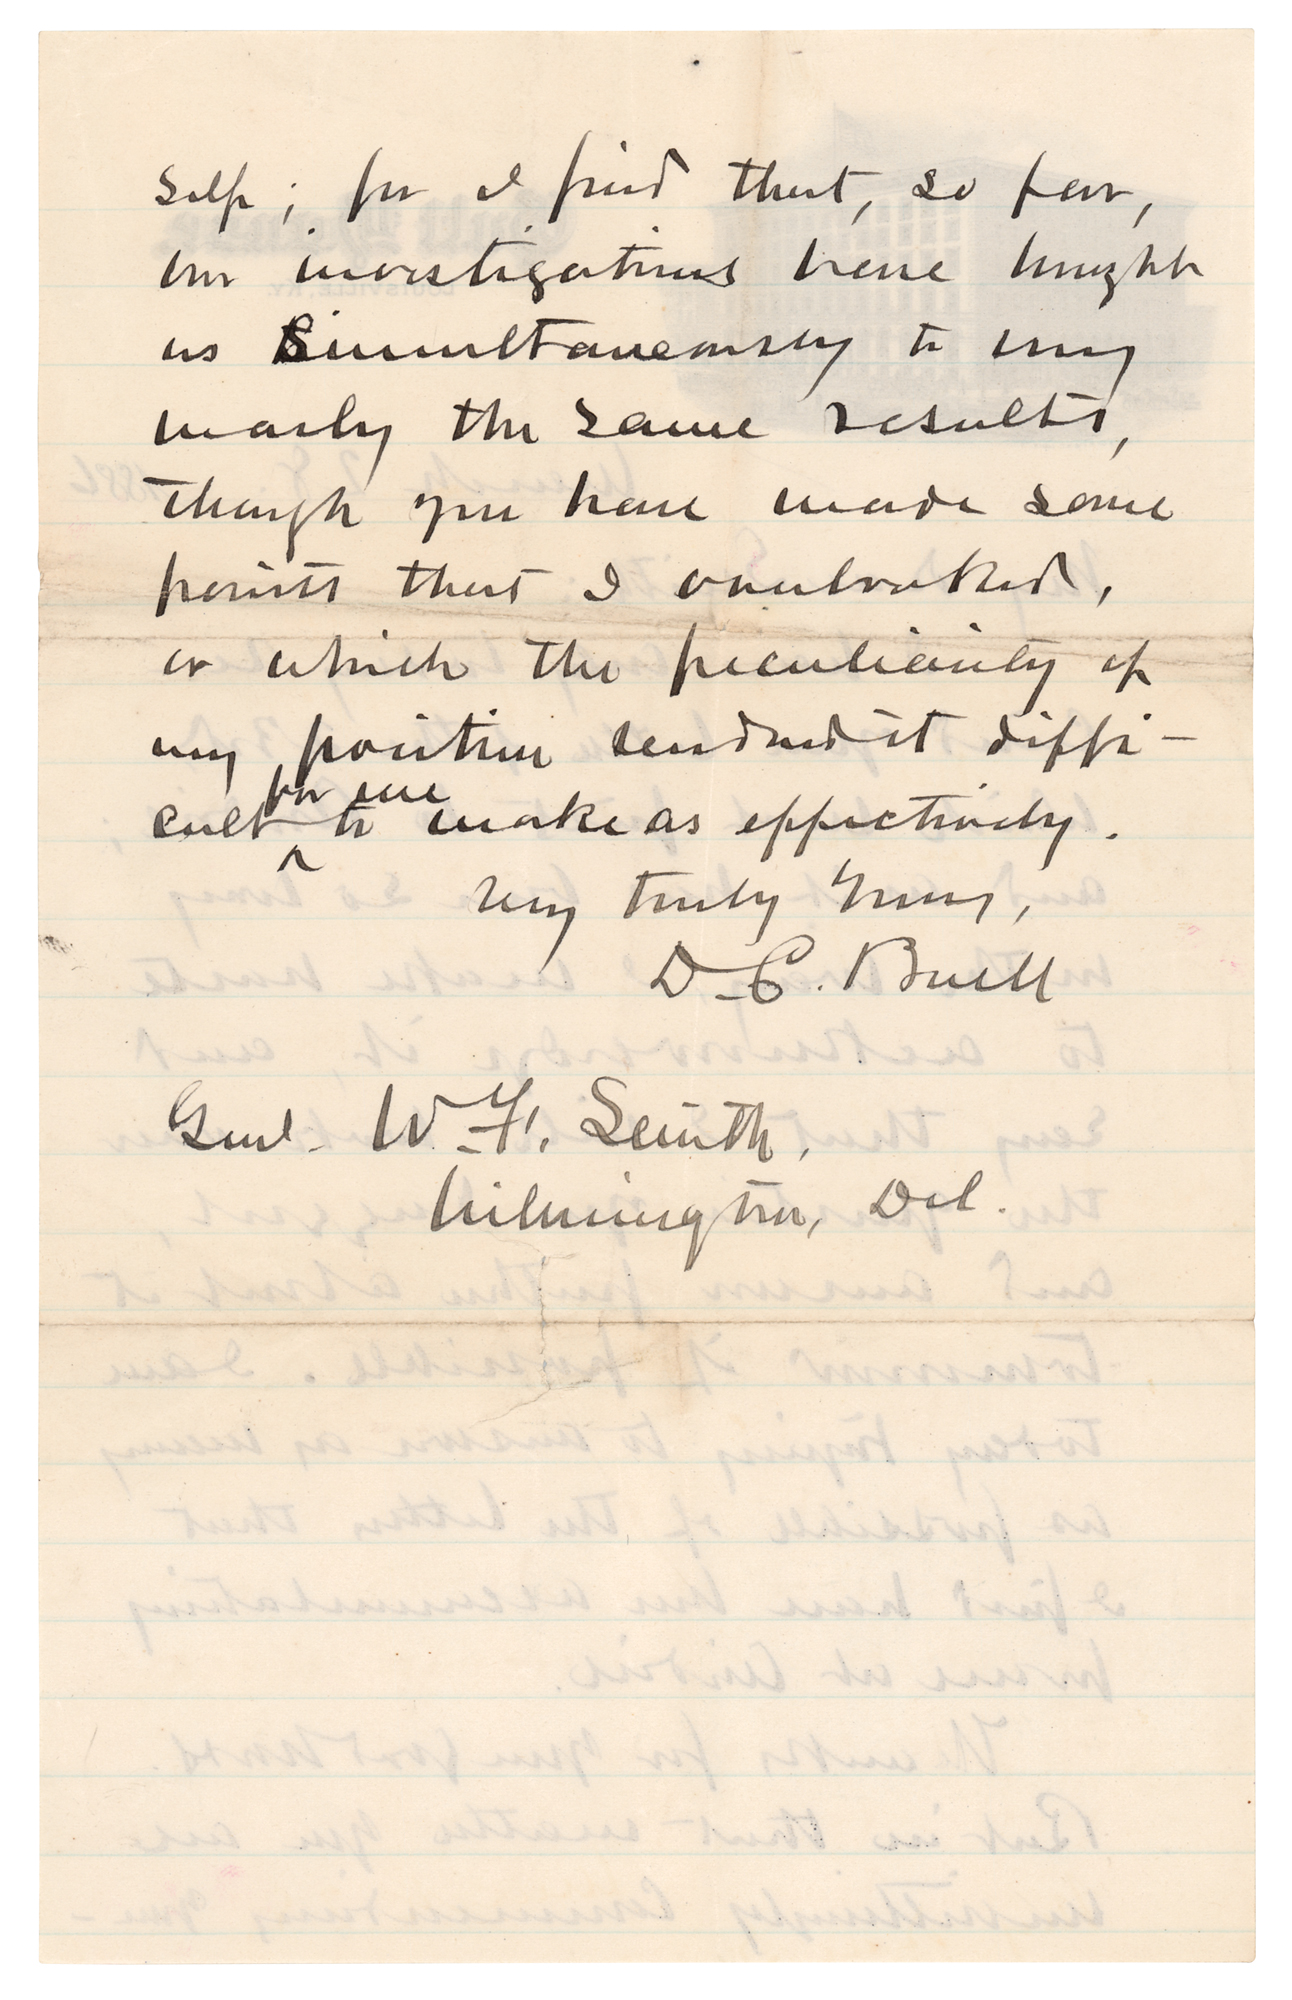 self; for I find that, so far,
our investigations have brought
us simultaneously to very
nearly the same results,
though you have made some
points that I overlooked,
or which the peculiarity of
my position rendered it diffi-
for me
cult to make as effectively.
Very truly Yours,
D. C. Buell
Genl. W. F. Smith,
Wilmington, Del.